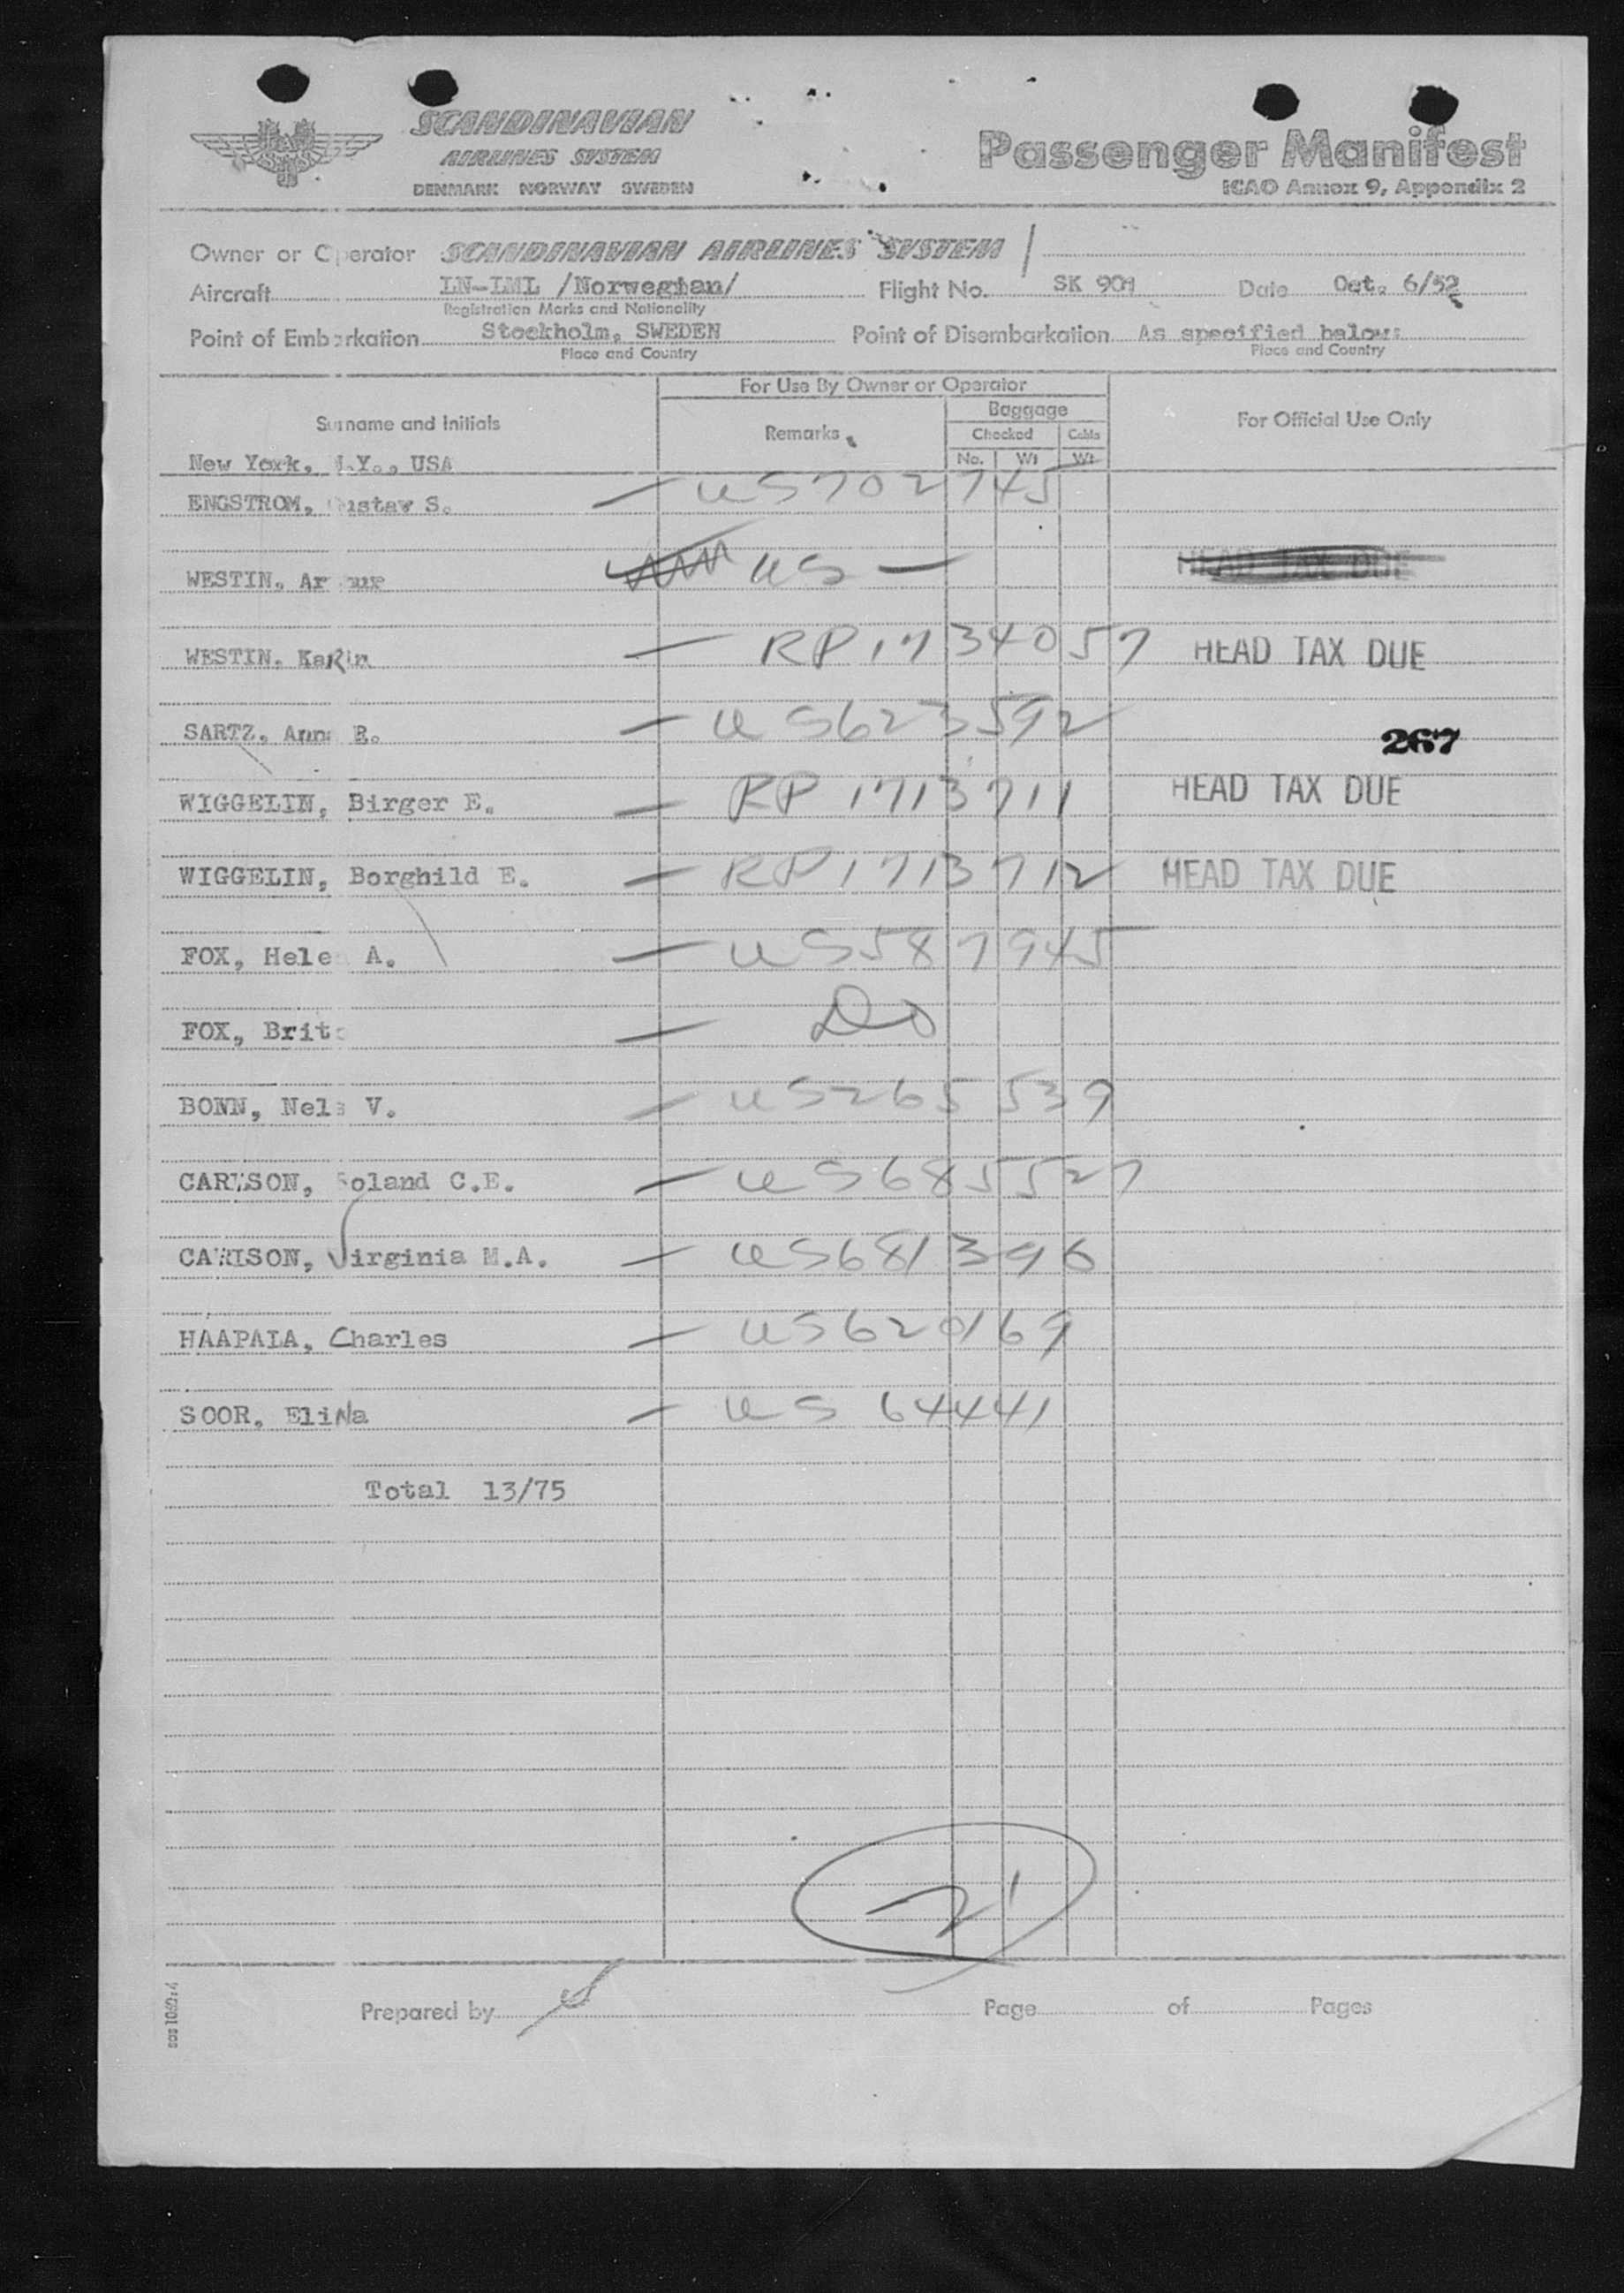 SCANDINAVIAN
AIRLINES SYSTEM
DENMARK NORWAY SWEDEN
Passenger Manifest
ICAO Annex 9, Appendix 2
Owner or Operator SCANDINAVIAN AIRLINES SYSTEM
Aircraft LN-LML /Norwegian/ Flight No. SK 901 Date Oct. 6/52
Registration Marks and Nationality
Point of Embarkation Stockholm, SWEDEN Point of Disembarkation As specified below:
Place and Country Place and Country
For Use By Owner or Operator
Surname and Initials Remarks Baggage For Official Use Only
Checked Cabin
No. Wt Wt
New York, N.Y., USA
ENGSTROM, Gustav S. — US702745
WESTIN, Arthur US — HEAD TAX DUE
WESTIN, KaRin — RP1734057 HEAD TAX DUE
SARTZ, Anna E. — US623592
267
WIGGELIN, Birger E. — RP 1713711 HEAD TAX DUE
WIGGELIN, Borghild E. — RP1713712 HEAD TAX DUE
FOX, Helen A. — US587945
FOX, Brita — Do
BONN, Nels V. — US265539
CARLSON, Roland C.E. — US685527
CARLSON, Virginia M.A. — US681396
HAAPALA, Charles — US620169
SOOR, EliNa — US 64441
Total 13/75
21
Prepared by Page of Pages